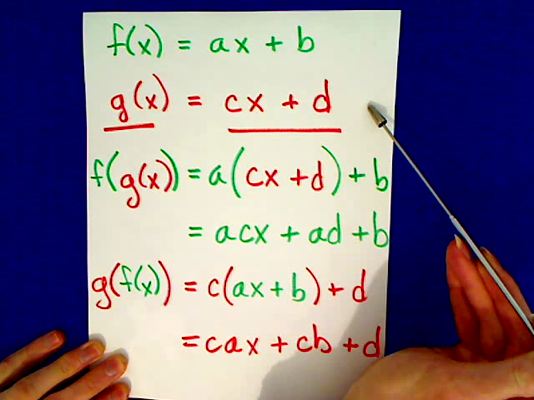 f(x) = ax + b
g(x) = cx + d
f(g(x)) = a(cx + d) + b
= acx + ad + b
g(f(x)) = c(ax + b) + d
= cax + cb + d